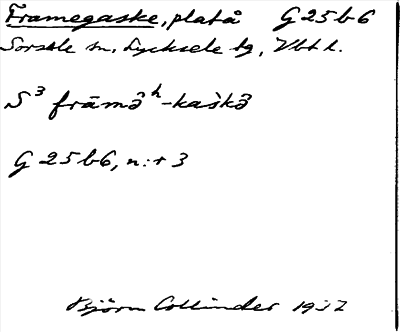 Framegaske, platå G25b6
Sorsele sn, Lycksele lg, Vbt l.
S³ frāmə̂ʰ-kas̀kə̂
G 25b6, n:r 3
Björn Collinder 1932